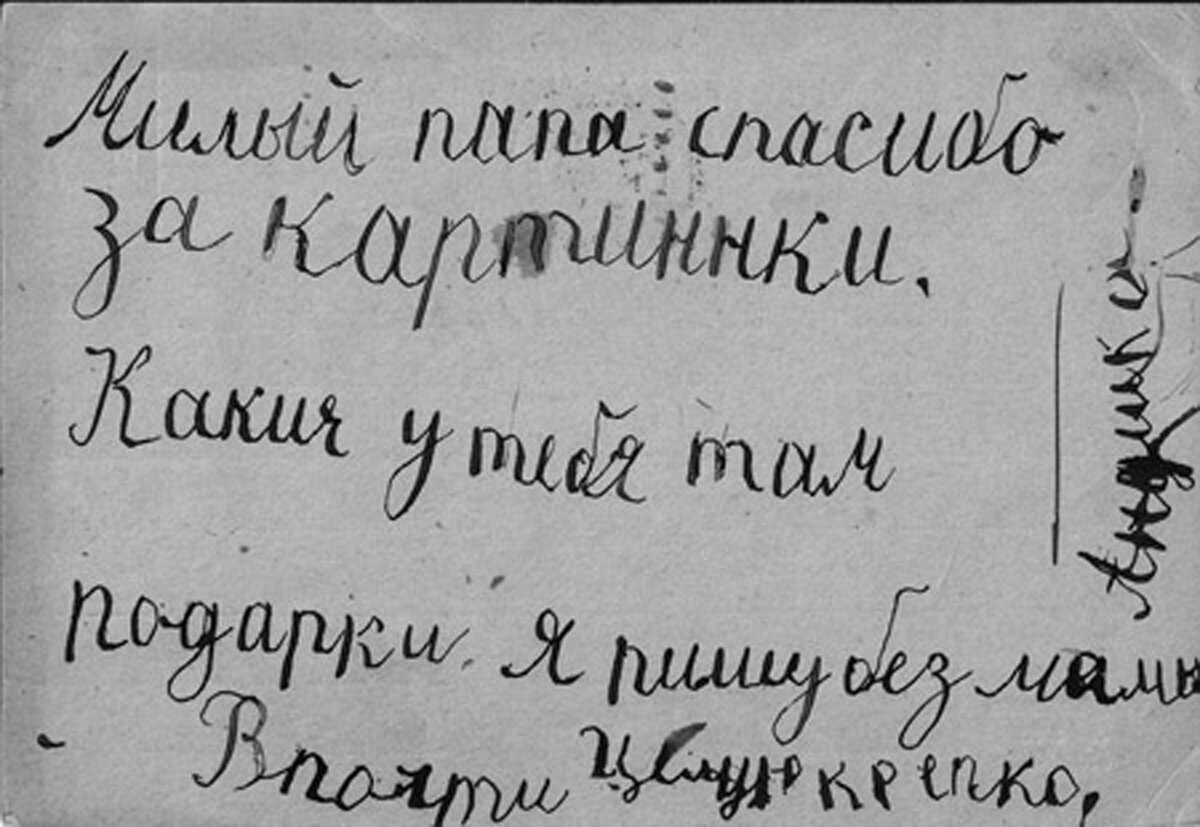 Милый папа спасибо
за картиннки.
Какич у тебя там
подарки. Я пишу без мамы
В почти Целую крепко,